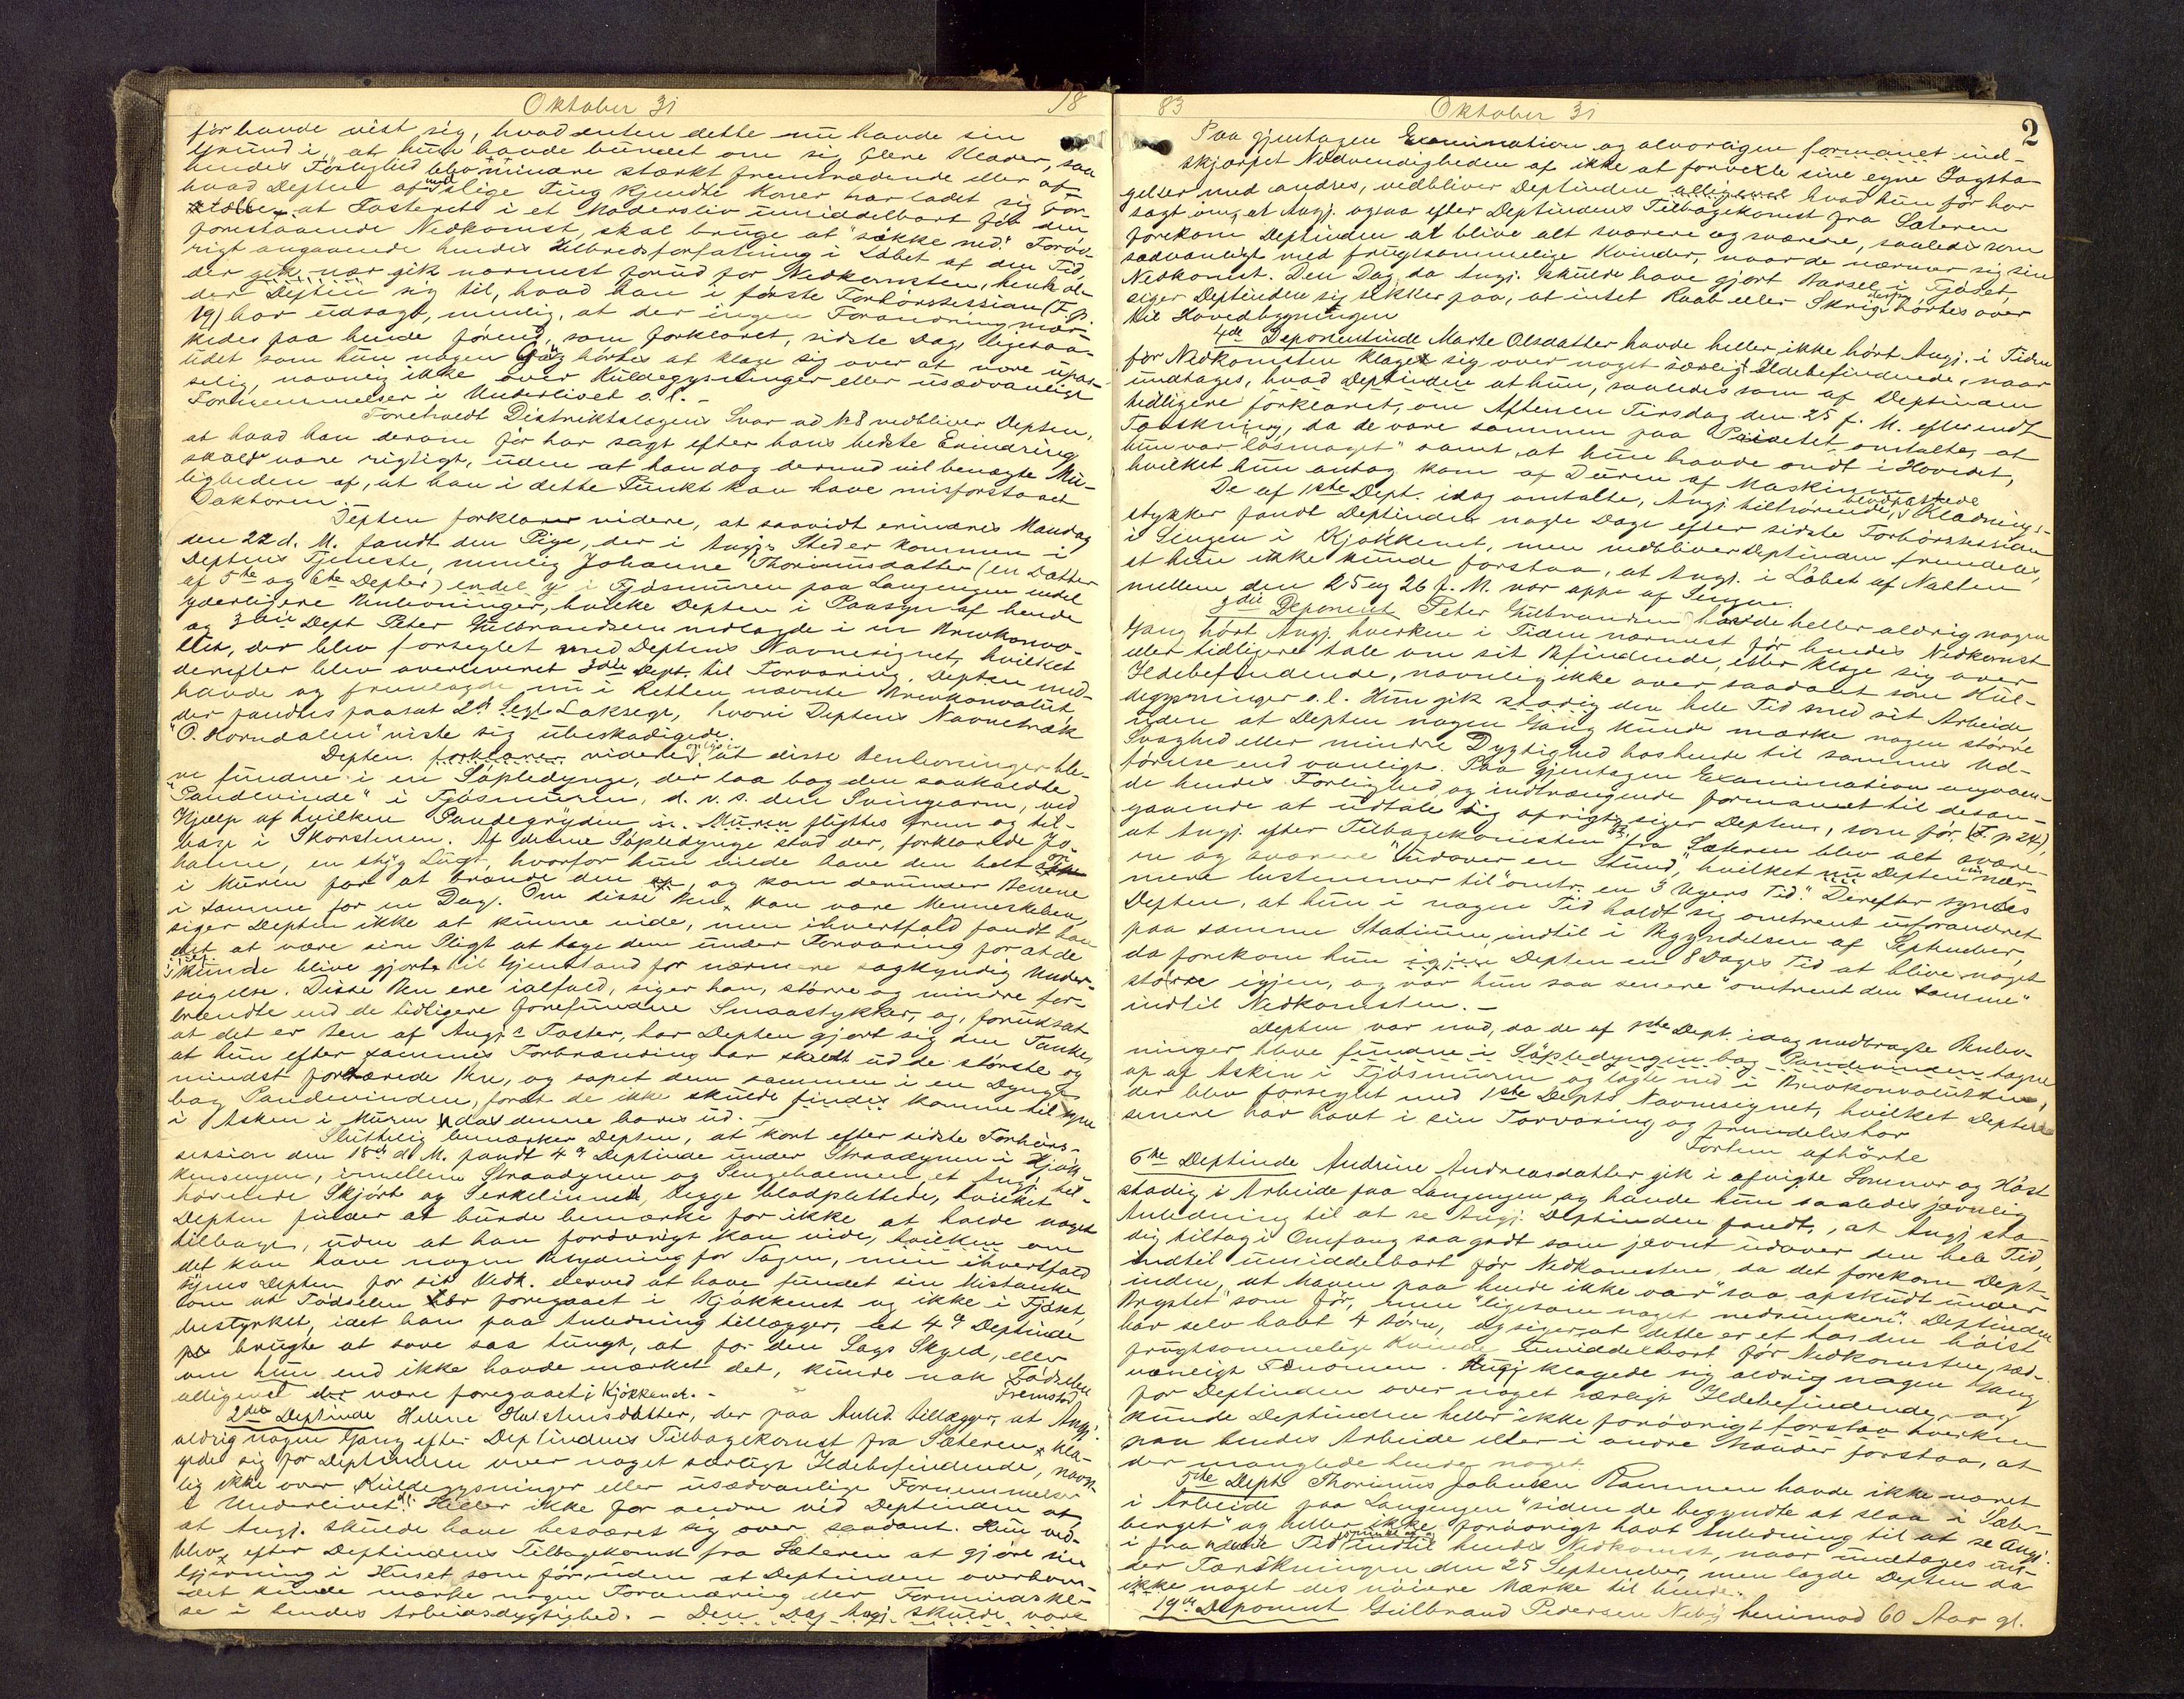 Oktober 31 18
før havde vist sig, hvad enten dette nu havde sin
Grund i, at hun havde bundet om sig flere Klæder, saa
hendes Førlighed blev mindre stærkt fremtrædende eller af
hvad Depten af med slige Ting kjendte Koner har ladet sig for-
tælle, at Fosteret i et Modersliv umiddelbart før den
forestaaende Nedkomst, skal bruge at "søkke ned". Forøv-
rigt angaaende hendes Helbredsforfatning i Løbet af den Tid,
der gik nær gik nærmest forud for Nedkomsten, henhol-
der Deptin sig til, hvad han i første Forhørssession (F. p.
19) har udsagt, nemlig, at der ingen Forandring mær-
kedes paa hende føren, som forklaret, sidste Dag, ligesaa-
lidet som hun nogen Gang hørtes at klage sig over at være upas-
selig, navnlig ikke over Kuldegysninger eller usædvanlige
Fornemmelser i Underlivet o. l. -
Foreholdt Distriktslægens Svar ad No 8 vedbliver Depten,
at hvad han derom før har sagt efter hans bedste Erindring
skal være rigtigt, uden at han dog dermed vil benægte Mu-
ligheden af, at han i dette Punkt kan have misforstaaet
Doktoren. -
Depten forklarer videre, at saavidt erindres Mandag
den 22 d. M. fandt den Pige, der i Angjs Sted er kommen i
Deptens Tjeneste, nemlig Johanne Thorinusdatter (en Datter
af 5te og 6te Depter) endel i Fjøsmuren paa Langengen endel
yderligere Benlevninger, hvilke Depten i Paasyn af hende
og 3die Dept Peter Gulbrandsen nedlagde i en Brevkonvo-
lut, der blev forseglet med Deptens Navnesignet, hvilket
derefter blev overleveret 3die Dept. til Forvaring. Depten med-
havde og fremlagde nu i Retten nævnte Brevkonvolut,
der fandtes paasat 2de Laksegl, hvori Deptens Navnetræk
"O. Horndalen" viste sig ubeskadigede.
Depten forklarer videre, at disse Benlevninger ble-
ve fundne i en Søpledynge, der laa bag den saakaldte
"Pandevinde" i Fjøsmuren, d. v. s. den Svingearm, ved
Hjælp af hvilken Pandegryden i Muren flyttes frem og til-
bage i Skorstenen. Af denne Søpledynge stod der, forklarede Jo-
hanne, en styg Lugt, hvorfor hun vilde have den helt
i Muren for at brænde den op, og kom derunder Benene
i samme for en Dag. Om disse Ben kan være Menneskeben,
siger Depten ikke at kunne vide, men ihvertfald fandt han
det at være sin Pligt at tage dem under Forvaring for at de
kunde blive gjorte til Gjenstand for nærmere sagkyndig Under-
søgelse. Disse Ben ere ialfald, siger han, større og mindre for-
brændte end de tidligere forefundne Smaastykker, og, forudsat
at det er Ben af Angjs Foster, har Depten gjort sig den Tanke,
at hun efter sammes Forbrænding har skilt ud de største og
mindst fortærede Ben, og sopet dem sammen i en Dynge
bag Pandevinden, forat de ikke skulde findes komme til syne
i Asken i Muren, da denne bares ud. -
Sluttelig bemærker Depten, at kort efter sidste Forhørs-
session den 18de d. M. fandt 4de Deptinde under Straadynen i Kjøk-
kensengen, imellem Straadynen og Sengehalmen, et Angj. til-
hørende Skjørt og Serkelinned, begge blodplettede, hvilket
Depten finder at burde bemærke for ikke at holde noget
tilbage, uden at han forøvrigt kan vide, hvilken om
det kan have nogen Betydning for Sagen, men ihvertfald
synes Depten for sit Vedk. derved at have fundet sin Mistanke
om at Fødselen er foregaaet i Kjøkkenet og ikke i Fjøset,
bestyrket, idet han paa Anledning tillægger, at 4de Deptinde
brugte at sove saa tungt, at for den Sags Skyld, eller
om hun end ikke havde mærket det, kunde nok Fødselen
alligevel der være foregaaet i Kjøkkenet. - Fremstod
2den Deptinde Helene Halstensdatter, der paa Anled. tillægger, at Angj.
aldrig nogen Gang efter Deptindens Tilbagekomst fra Sæteren kla-
gede sig for Deptinden over noget særligt Ildebefindende, navn-
lig ikke over Kuldegysninger eller usædvanlige Fornemmelser
i Underlivet. Heller ikke for andre ved Deptinden at
at Angj. skulde have besværet sig over saadant. Hun ved-
blev efter Deptindens Tilbagekomst fra Sæteren at gjøre sin
Gjerning i Huset som før, uden at Deptinden overhove-
det kunde mærke nogen Forandring eller Formindskel-
se i hendes Arbeidsdygtighed. - Den Dag Angj. skulde være
83 Oktober 31 2
Paa gjentagen Examination og alvorligen formanet ind-
skjærpet Nødvendigheden af ikke at forvexle sine egne Iagtta-
gelser med andres, vedbliver Deptinden alligevel hvad hun før har
sagt om, at Angj. ogsaa efter Deptindens Tilbagekomst fra Sæteren
forekom Deptinden at blive alt sværere og sværere, saaledes som
sædvanligt med frugtsommelige Kvinder, naar de nærmer sig sin
Nedkomst. Den Dag, da Angj. skulde have gjort Barsel i Fjøset,
siger Deptinden sig sikker paa, at intet Raab eller Skrig hørtes over
til Hovedbygningen
4de Deponentinde Marte Olsdatter havde heller ikke hørt Angj. i Tiden
før Nedkomsten klaget sig over noget særligt Ildebefindende, naar
undtages, hvad Deptinden at hun, saaledes som af Deptinden
tidligere forklaret, om Aftenen Tirsdag den 25 f. M. efter endt
Tærskning, da de vare sammen paa Privetet omtalte, at
hun var "løsmaget" samt, at hun havde ondt i Hovedet,
hvilket hun antog kom af Duren af Maskinen
De af 1ste Dept. idag omtalte, Angj. tilhørende, blodplettede Klædnings-
stykker fandt Deptinden nogle Dage efter sidste Forhørssession
i Sengen i Kjøkkenet, men vedbliver Deptinden fremdeles,
at hun ikke kunde forstaa, at Angj. i Løbet af Natten
mellem den 25 og 26 f. M. var oppe af Sengen.
3die Deponent Peter Gulbrandsen havde heller aldrig nogen
Gang hørt Angj. hverken i Tiden nærmest før hendes Nedkomst
eller tidligere tale om sit Befindende, eller klage sig over
Ildebefindende, navnlig ikke over saadant som Kul-
degysninger o. l. Hun gik stadig den hele Tid med sit Arbeide,
uden at Depten nogen Gang kunde mærke nogen større
Svaghed eller mindre Dygtighed hos hende til sammes Ud-
førelse end vanligt. Paa gjentagen Examination angaaen-
de hendes Førlighed, og indtrængende formanet til desan-
gaaende at udtale sig oprigtigt, siger Depten, som før (F. p 24),
at Angj. efter Tilbagekomsten fra Sæteren blev alt svære-
re og sværere "udover en Stund", hvilket nu Depten nær-
mere bestemmer til "omtr. en 3 Ugers Tid." Derefter syntes
Depten, at hun i nogen Tid holdt sig omtrent uforandret
paa samme Stadium, indtil i Begyndelsen af September,
da forekom hun igjen Depten en 8 Dages Tid at blive noget
større igjen, og var hun saa senere "omtrent den samme"
indtil Nedkomsten. -
Depten var med, da de af 1ste Dept. idag medbragte Benlev-
ninger bleve fundne i Søpledyngen bag Pandevinden, tagne
op af Asken i Fjøsmuren og lagte ned i Brevkonvolutten,
der blev forseglet med 1ste Depts Navnesignet, hvilket Depten
senere har havt i sin Forvaring og fremdeles har
Fortin afhørte
6te Deptinde Andrine Andreasdatter gik i afvigte Sommer og Høst
stadig i Arbeide paa Langengen og havde hun saaledes jevnlig
Anledning til at se Angj. Deptinden fandt, at Angj. sta-
dig tiltog i Omfang saagodt som jevnt udover den hele Tid,
indtil umiddelbart før Nedkomsten, da det forekom Dept-
inden, at Maven paa hende ikke var "saa opskudt under
Brystet" som før, men "ligesom noget nedsunken". Deptinden
har selv havt 4 Børn, og siger, at dette er et hos den høist
frugtsommelige Kvinde umiddelbart før Nedkomsten sæd-
vanligt Fænomen. Angj. klagede sig aldrig nogen Gang
for Deptinden over noget særligt Ildebefindende, og
kunde Deptinden heller ikke forøvrigt forstaa hverken
paa hendes Arbeide eller i andre Maader forstaa, at
der manglede hende noget
5te Dept. Thorinus Johnsen Rammen havde ikke været
i Arbeide paa Langengen "siden de begyndte at slaa i Sæter-
berget" og heller ikke forøvrigt havt Anledning til at se Angj.
i fra Tid indtil hendes Nedkomst, naar undtages un-
der Tærskningen den 25 September, men lagde Depten da
ikke noget des nøiere Mærke til hende.
19de Deponent Gulbrand Pedersen Neby henimod 60 Aar gl.